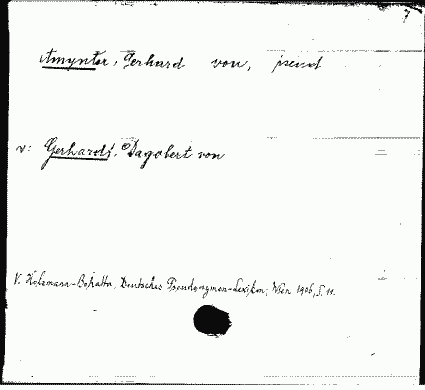 7
Amyntor, Gerhard von, pseud
v: Gerhardt, Dagobert von
V. Holzmann-Bohatta, Deutsches Pseudonymen-Lexikon; Wien 1906, S. 11.